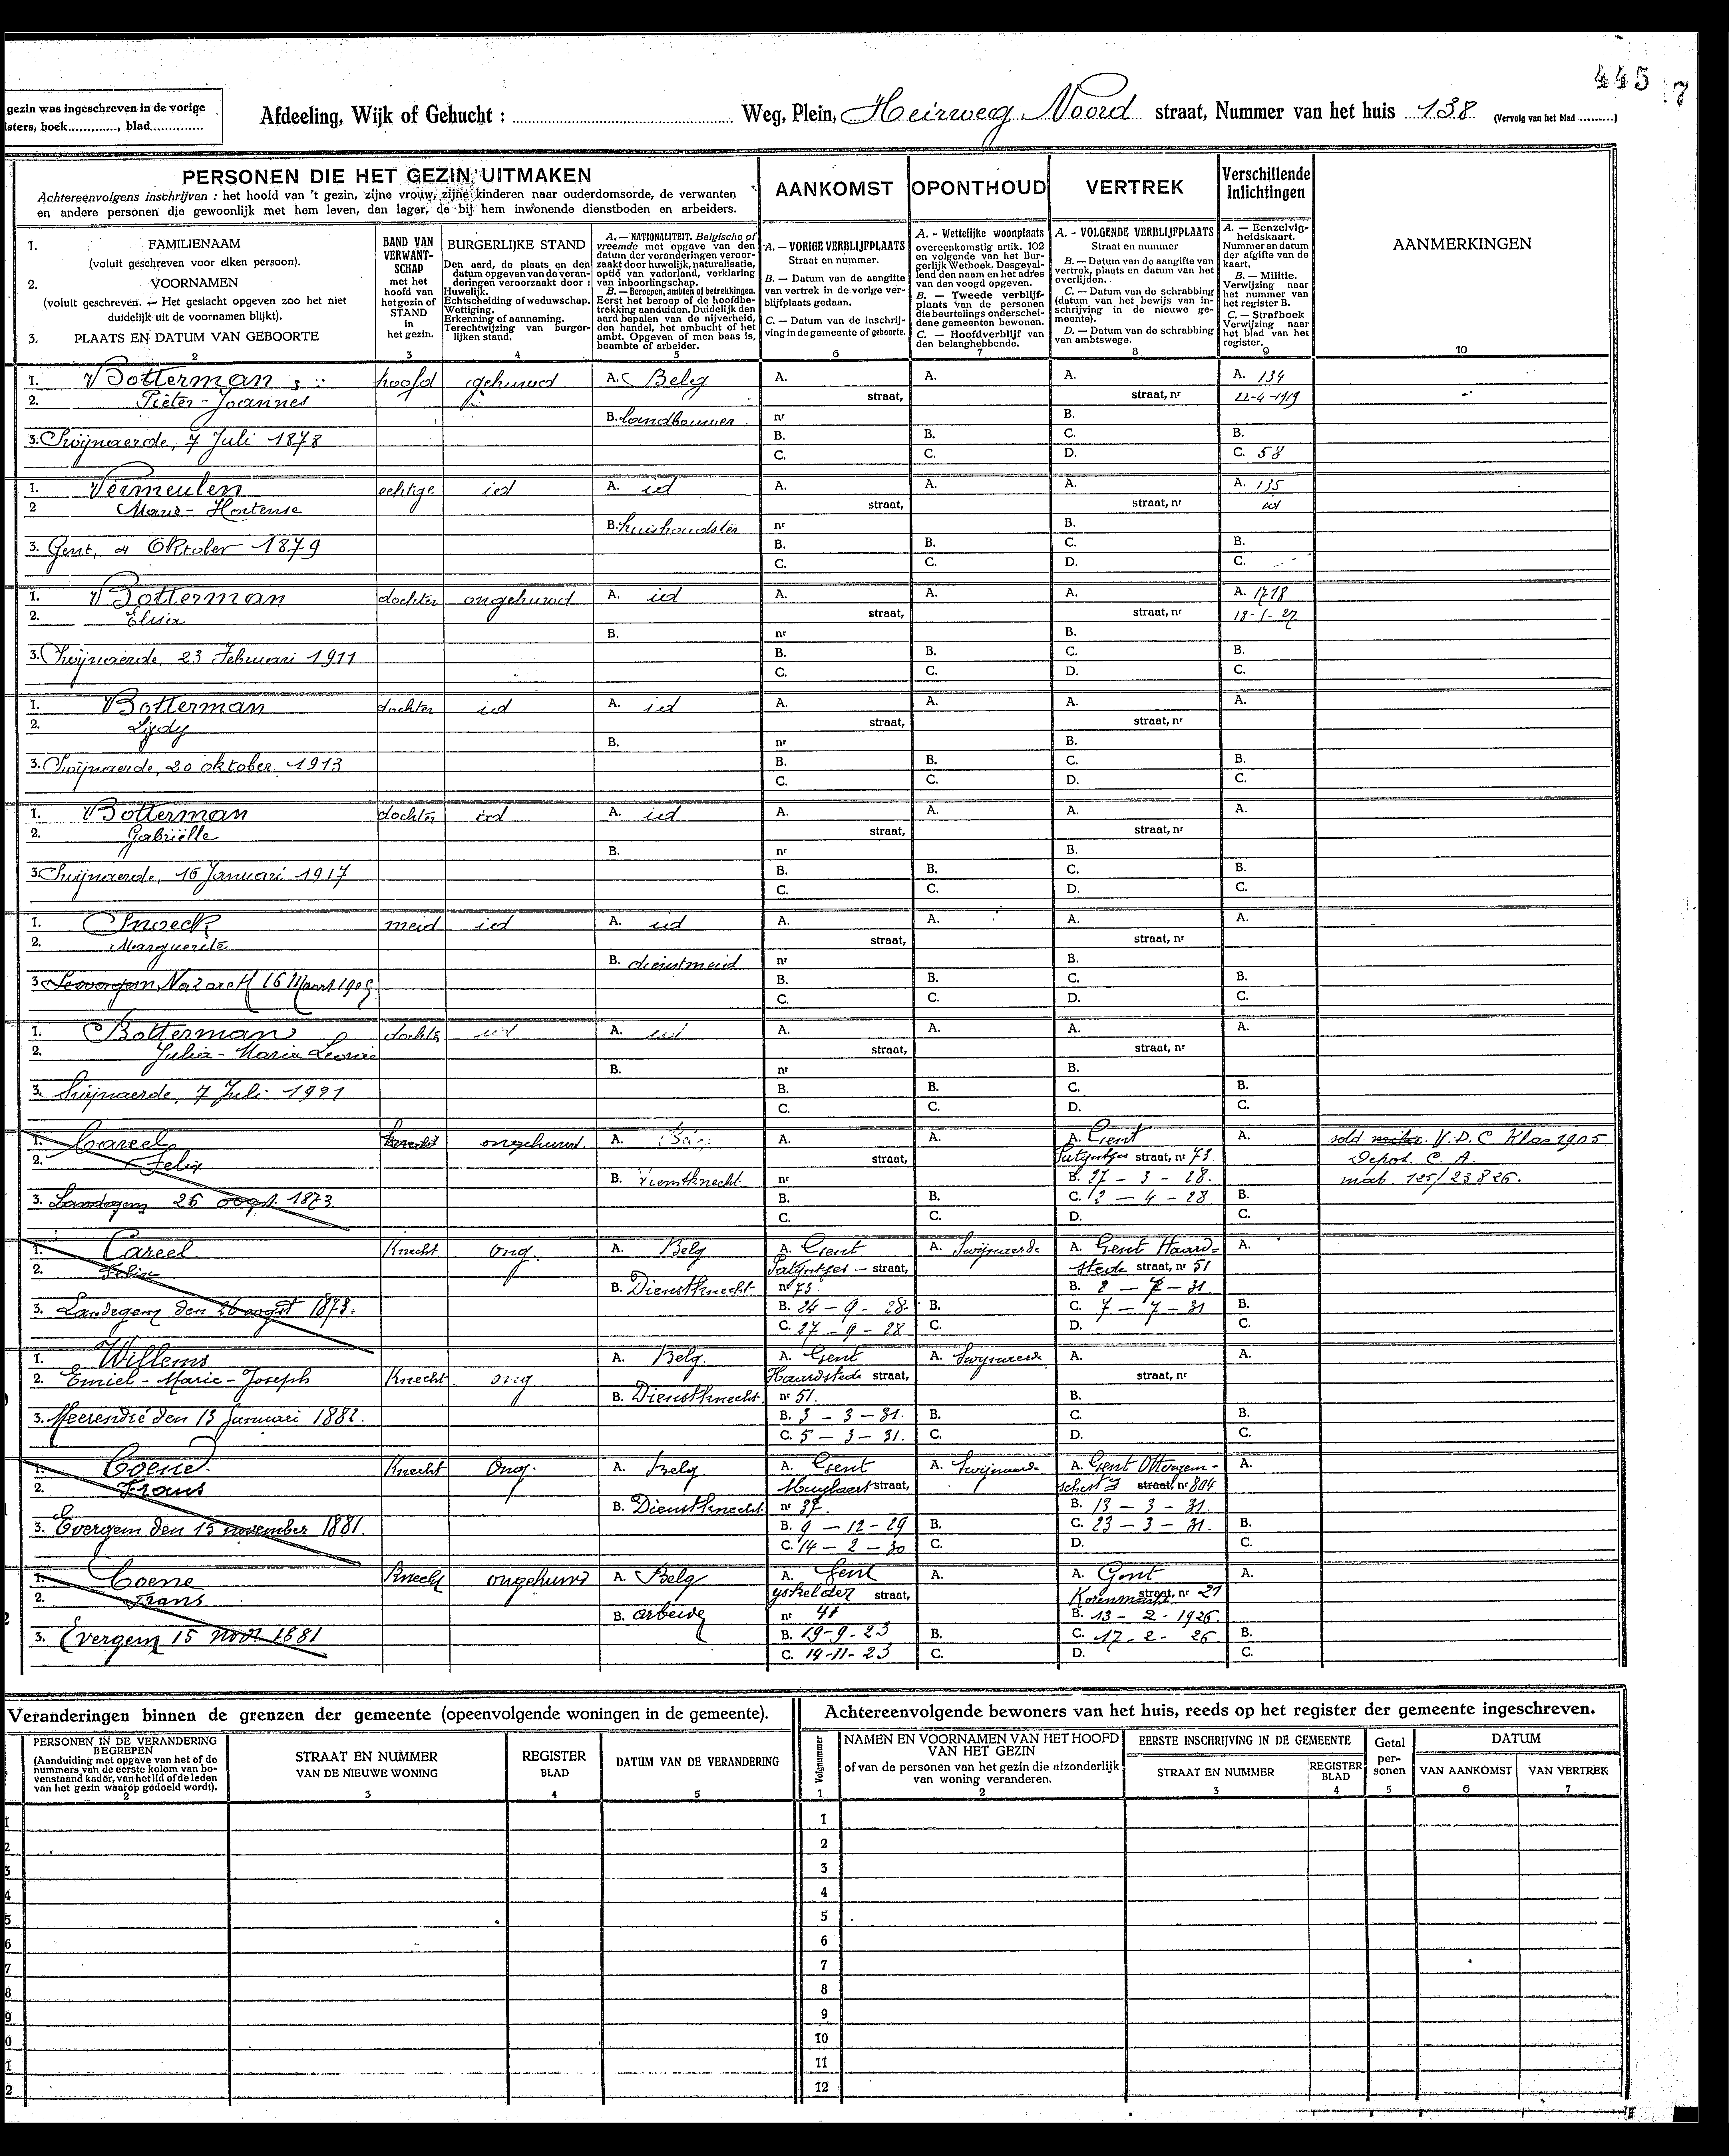 445
7
gezin was ingeschreven in de vorige
isters, boek............, blad.............
Afdeeling, Wijk of Gehucht : ........................ Weg, Plein, Heirweg Noord straat, Nummer van het huis 138 (Vervolg van het blad ..........)
PERSONEN DIE HET GEZIN UITMAKEN
Achtereenvolgens inschrijven : het hoofd van 't gezin, zijne vrouw, zijne kinderen naar ouderdomsorde, de verwanten
en andere personen die gewoonlijk met hem leven, dan lager, de bij hem inwonende dienstboden en arbeiders.
AANKOMST
OPONTHOUD
VERTREK
Verschillende
Inlichtingen
1. FAMILIENAAM
(voluit geschreven voor elken persoon).
2. VOORNAMEN
(voluit geschreven. — Het geslacht opgeven zoo het niet
duidelijk uit de voornamen blijkt).
3. PLAATS EN DATUM VAN GEBOORTE
2
BAND VAN
VERWANT-
SCHAP
met het
hoofd van
het gezin of
STAND
in
het gezin.
3
BURGERLIJKE STAND
Den aard, de plaats en den
datum opgeven van de veran-
deringen veroorzaakt door :
Huwelijk.
Echtscheiding of weduwschap.
Wettiging.
Erkenning of aanneming.
Terechtwijzing van burger-
lijken stand.
4
A. — NATIONALITEIT. Belgische of
vreemde met opgave van den
datum der veranderingen veroor-
zaakt door huwelijk, naturalisatie,
optie van vaderland, verklaring
van inboorlingschap.
B. — Beroepen, ambten of betrekkingen.
Eerst het beroep of de hoofdbe-
trekking aanduiden. Duidelijk den
aard bepalen van de nijverheid,
den handel, het ambacht of het
ambt. Opgeven of men baas is,
beambte of arbeider.
5
A. — VORIGE VERBLIJFPLAATS
Straat en nummer.
B. — Datum van de aangifte
van vertrek in de vorige ver-
blijfplaats gedaan.
C. — Datum van de inschrij-
ving in de gemeente of geboorte.
6
A. - Wettelijke woonplaats
overeenkomstig artik. 102
en volgende van het Bur-
gerlijk Wetboek. Desgeval-
lend den naam en het adres
van den voogd opgeven.
B. — Tweede verblijf-
plaats van de personen
die beurtelings onderschei-
dene gemeenten bewonen.
C. — Hoofdverblijf van
den belanghebbende.
7
A. - VOLGENDE VERBLIJFPLAATS
Straat en nummer
B. — Datum van de aangifte van
vertrek, plaats en datum van het
overlijden.
C. — Datum van de schrabbing
(datum van het bewijs van in-
schrijving in de nieuwe ge-
meente).
D. — Datum van de schrabbing
van ambtswege.
8
A. — Eenzelvig-
heidskaart.
Nummer en datum
der afgifte van de
kaart.
B. — Militie.
Verwijzing naar
het nummer van
het register B.
C. — Strafboek
Verwijzing naar
het blad van het
register.
9
AANMERKINGEN
10
1. Botterman hoofd gehuwd A. Belg A. A. A. A. 134
2. Pieter-Joannes straat, straat, nr 22-4-1919
B. landbouwer nr B.
3. Swijnaerde, 7 Juli 1878 B. B. C. B.
C. C. D. C. 58
1. Vermeulen echtige id A. id A. A. A. A. 135
2 Marie-Hortense straat, straat, nr id
B. huishoudster nr B.
3. Gent, 4 Oktober 1879 B. B. C. B.
C. C. D. C.
1. Botterman dochter ongehuwd A. id A. A. A. A. 1718
2. Elisa straat, straat, nr 18-1-27
B. nr B.
3. Swijnaerde, 23 Februari 1911 B. B. C. B.
C. C. D. C.
1. Botterman dochter id A. id A. A. A. A.
2. Lydy straat, straat, nr
B. nr B.
3. Swijnaerde, 20 oktober 1913 B. B. C. B.
C. C. D. C.
1. Botterman dochter id A. id A. A. A. A.
2. Gabriëlle straat, straat, nr
B. nr B.
3 Swijnaerde, 16 Januari 1917 B. B. C. B.
C. C. D. C.
1. Snoeck meid id A. id A. A. A. A.
2. Marguerite straat, straat, nr
B. dienstmeid nr B.
3 Nazareth 16 Maart 1905 B. B. C. B.
C. C. D. C.
1. Botterman dochter id A. id A. A. A. A.
2. Julia-Maria Leonie straat, straat, nr
B. nr B.
3. Swijnaerde, 7 Juli 1921 B. B. C. B.
C. C. D. C.
1. Careel knecht ongehuwd. A. Belg A. A. A. Gent A. sold V.D.C Klas 1905
2. Felix straat, Patyntjes straat, nr 73 Depot. C. A.
B. Dienstknecht nr B. 27 - 3 - 28. mat. 125/23826.
3. Landegem 26 oogst 1873. B. B. C. 12 - 4 - 28 B.
C. C. D. C.
1. Careel. Knecht ong. A. Belg A. Gent A. Swijnaerde A. Gent Haard= A.
2. Felix Patyntjes - straat, stede straat, nr 51
B. Dienstknecht nr 73. B. 2 - 7 - 31.
3. Landegem den 26 oogst 1873. B. 24 - 9 - 28. B. C. 7 - 7 - 31 B.
C. 27 - 9 - 28 C. D. C.
1. Willems A. Belg. A. Gent A. Swijnaerde A. A.
2. Emiel-Marie-Joseph Knecht ong Haardstede straat, straat, nr
B. Dienstknecht. nr 51. B.
3. Meerendré den 13 Januari 1882. B. 3 - 3 - 31. B. C. B.
C. 5 - 3 - 31. C. D. C.
1. Coene. Knecht Ong. A. Belg A. Gent A. Swijnaerde A. Gent Ottergem- A.
2. Frans Muylaert straat, straat, nr 804
B. Dienstknecht. nr 37. B. 13 - 3 - 31.
3. Evergem den 15 november 1881. B. 9 - 12 - 29 B. C. 23 - 3 - 31. B.
C. 14 - 2 - 30 C. D. C.
1. Coene Knecht ongehuwd A. Belg A. Gent A. A. Gent A.
2. Frans yskelder straat, Korenmarkt straat, nr 21
B. arbeider nr 41 B. 13 - 2 - 1926.
3. Evergem 15 nov. 1881 B. 19-9-23 B. C. 17-2-26 B.
C. 14-11-23 C. D. C.
Veranderingen binnen de grenzen der gemeente (opeenvolgende woningen in de gemeente).
Achtereenvolgende bewoners van het huis, reeds op het register der gemeente ingeschreven.
PERSONEN IN DE VERANDERING
BEGREPEN
(Aanduiding met opgave van het of de
nummers van de eerste kolom van bo-
venstaand kader, van het lid of de leden
van het gezin waarop gedoeld wordt).
2
STRAAT EN NUMMER
VAN DE NIEUWE WONING
3
REGISTER
BLAD
4
DATUM VAN DE VERANDERING
5
Volgnummer
1
NAMEN EN VOORNAMEN VAN HET HOOFD
VAN HET GEZIN
of van de personen van het gezin die afzonderlijk
van woning veranderen.
2
EERSTE INSCHRIJVING IN DE GEMEENTE
STRAAT EN NUMMER
3
REGISTER
BLAD
4
Getal
per-
sonen
5
DATUM
VAN AANKOMST
6
VAN VERTREK
7
1 1
2 2
3 3
4 4
5 5
6 6
7 7
8 8
9 9
0 10
1 11
2 12